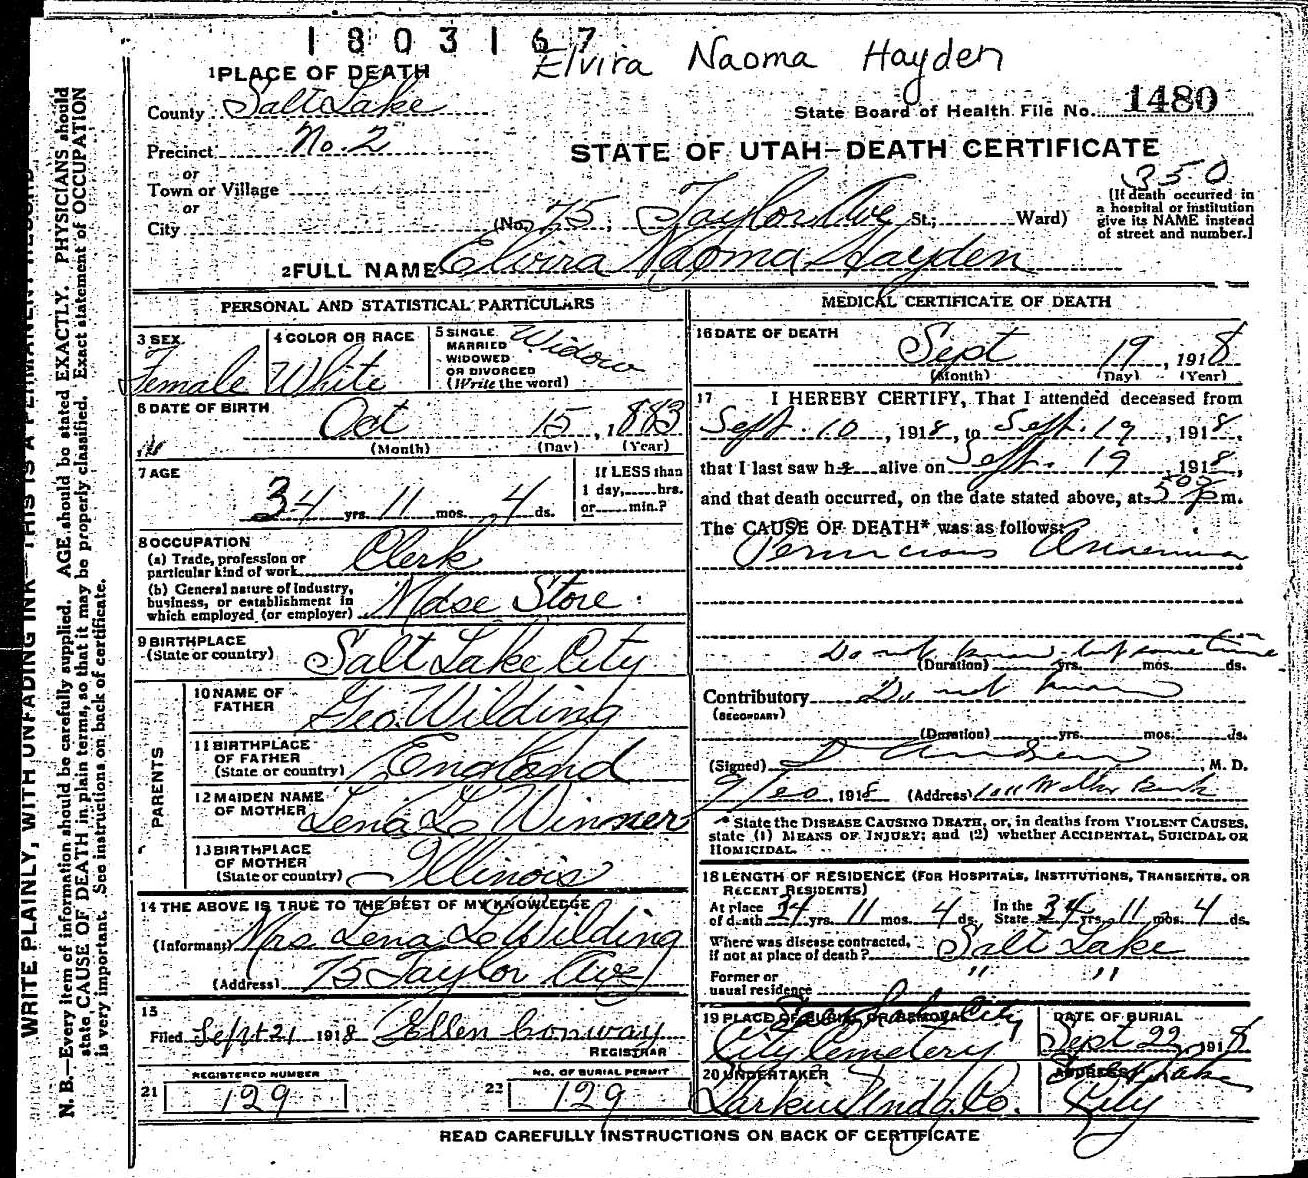 1803167
Elvira Naoma Hayden
1 PLACE OF DEATH
County Salt Lake
State Board of Health File No. 1480
Precinct No. 2
STATE OF UTAH—DEATH CERTIFICATE
or
350
Town or Village
or
[If death occurred in
a hospital or institution
give its NAME instead
of street and number.]
City (No. 75, Taylor Ave St.; Ward)
2 FULL NAME Elvira Naoma Hayden
PERSONAL AND STATISTICAL PARTICULARS
3 SEX
Female
4 COLOR OR RACE
White
5 SINGLE
MARRIED
WIDOWED
OR DIVORCED
(Write the word)
Widow
6 DATE OF BIRTH
Oct 15, 1883
(Month) (Day) (Year)
7 AGE
34 yrs. 11 mos. 4 ds.
If LESS than
1 day, hrs.
or min.?
8 OCCUPATION
(a) Trade, profession or
particular kind of work Clerk
(b) General nature of Industry,
business, or establishment in
which employed (or employer) Mdse Store
9 BIRTHPLACE
(State or country) Salt Lake City
PARENTS
10 NAME OF
FATHER Geo. Wilding
11 BIRTHPLACE
OF FATHER
(State or country) England
12 MAIDEN NAME
OF MOTHER Lena L. Winner
13 BIRTHPLACE
OF MOTHER
(State or country) Illinois
14 THE ABOVE IS TRUE TO THE BEST OF MY KNOWLEDGE
(Informant) Mrs Lena L. Wilding
(Address) 75 Taylor Ave
15
Filed Sept 21 1918 Ellen Conway
REGISTRAR
21 REGISTERED NUMBER
129
22 NO. OF BURIAL PERMIT
129
MEDICAL CERTIFICATE OF DEATH
16 DATE OF DEATH
Sept 19, 1918
(Month) (Day) (Year)
17 I HEREBY CERTIFY, That I attended deceased from
Sept. 10, 1918, to Sept. 19, 1918,
that I last saw h alive on Sept. 19, 1918,
and that death occurred, on the date stated above, at m.
The CAUSE OF DEATH* was as follows:
Pernicious Anaemia
Do not know, but some time
(Duration) yrs. mos. ds.
Contributory Do not know
(SECONDARY)
(Duration) yrs. mos. ds.
(Signed) M. D.
1918 (Address) 1011 Walker Bank
* State the DISEASE CAUSING DEATH, or, in deaths from VIOLENT CAUSES,
state (1) MEANS OF INJURY; and (2) whether ACCIDENTAL, SUICIDAL OR
HOMICIDAL.
18 LENGTH OF RESIDENCE (FOR HOSPITALS, INSTITUTIONS, TRANSIENTS, OR
RECENT RESIDENTS)
At place
of death 34 yrs. 11 mos. 4 ds.
In the
State 34 yrs. 11 mos. 4 ds.
Where was disease contracted,
if not at place of death? Salt Lake
Former or
usual residence " "
19 PLACE OF BURIAL OR REMOVAL
Salt Lake City
City Cemetery
DATE OF BURIAL
Sept 22, 1918
20 UNDERTAKER
Larkin Undg. Co.
ADDRESS
Salt Lake
City
READ CAREFULLY INSTRUCTIONS ON BACK OF CERTIFICATE
WRITE PLAINLY, WITH UNFADING INK—THIS IS A PERMANENT RECORD
N. B.—Every item of information should be carefully supplied. AGE should be stated EXACTLY. PHYSICIANS should
state CAUSE OF DEATH in plain terms, so that it may be properly classified. Exact statement of OCCUPATION
is very important. See instructions on back of certificate.